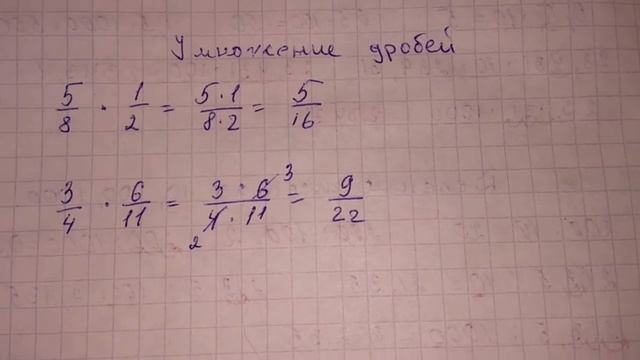 Умножение дробей
5/8 · 1/2 = 5·1/8·2 = 5/16
3/4 · 6/11 = 3·6 3/4·11 2 = 9/22